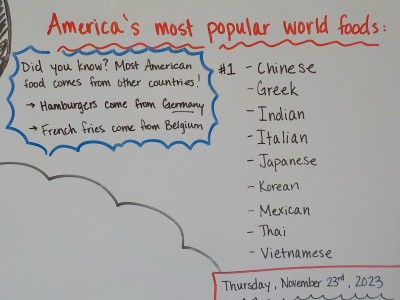 America's most popular world foods:
Did you know? Most American
food comes from other countries!
→ Hamburgers come from Germany
→ French fries come from Belgium
#1 - Chinese
- Greek
- Indian
- Italian
- Japanese
- Korean
- Mexican
- Thai
- Vietnamese
Thursday, November 23rd, 2023